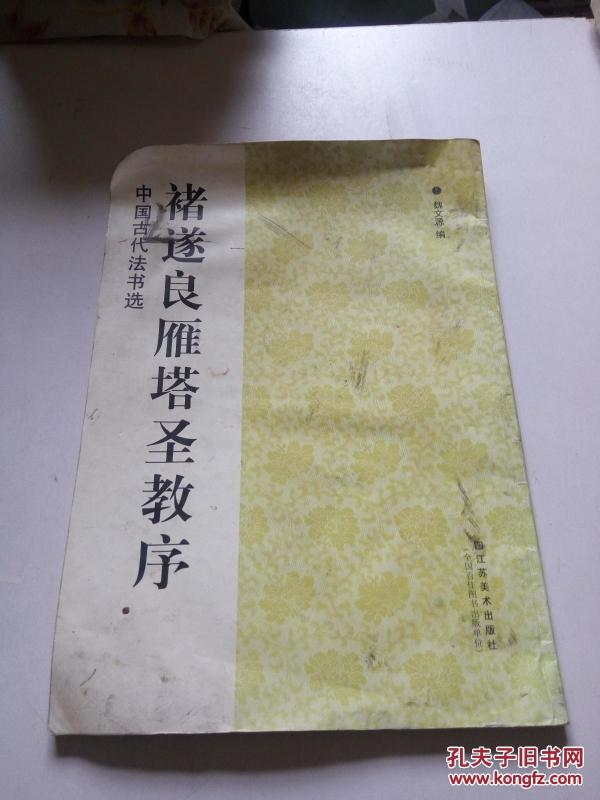 褚遂良雁塔圣教序
中国古代法书选
魏文源 编
江苏美术出版社
（全国百佳图书出版单位）
孔夫子旧书网
www.kongfz.com